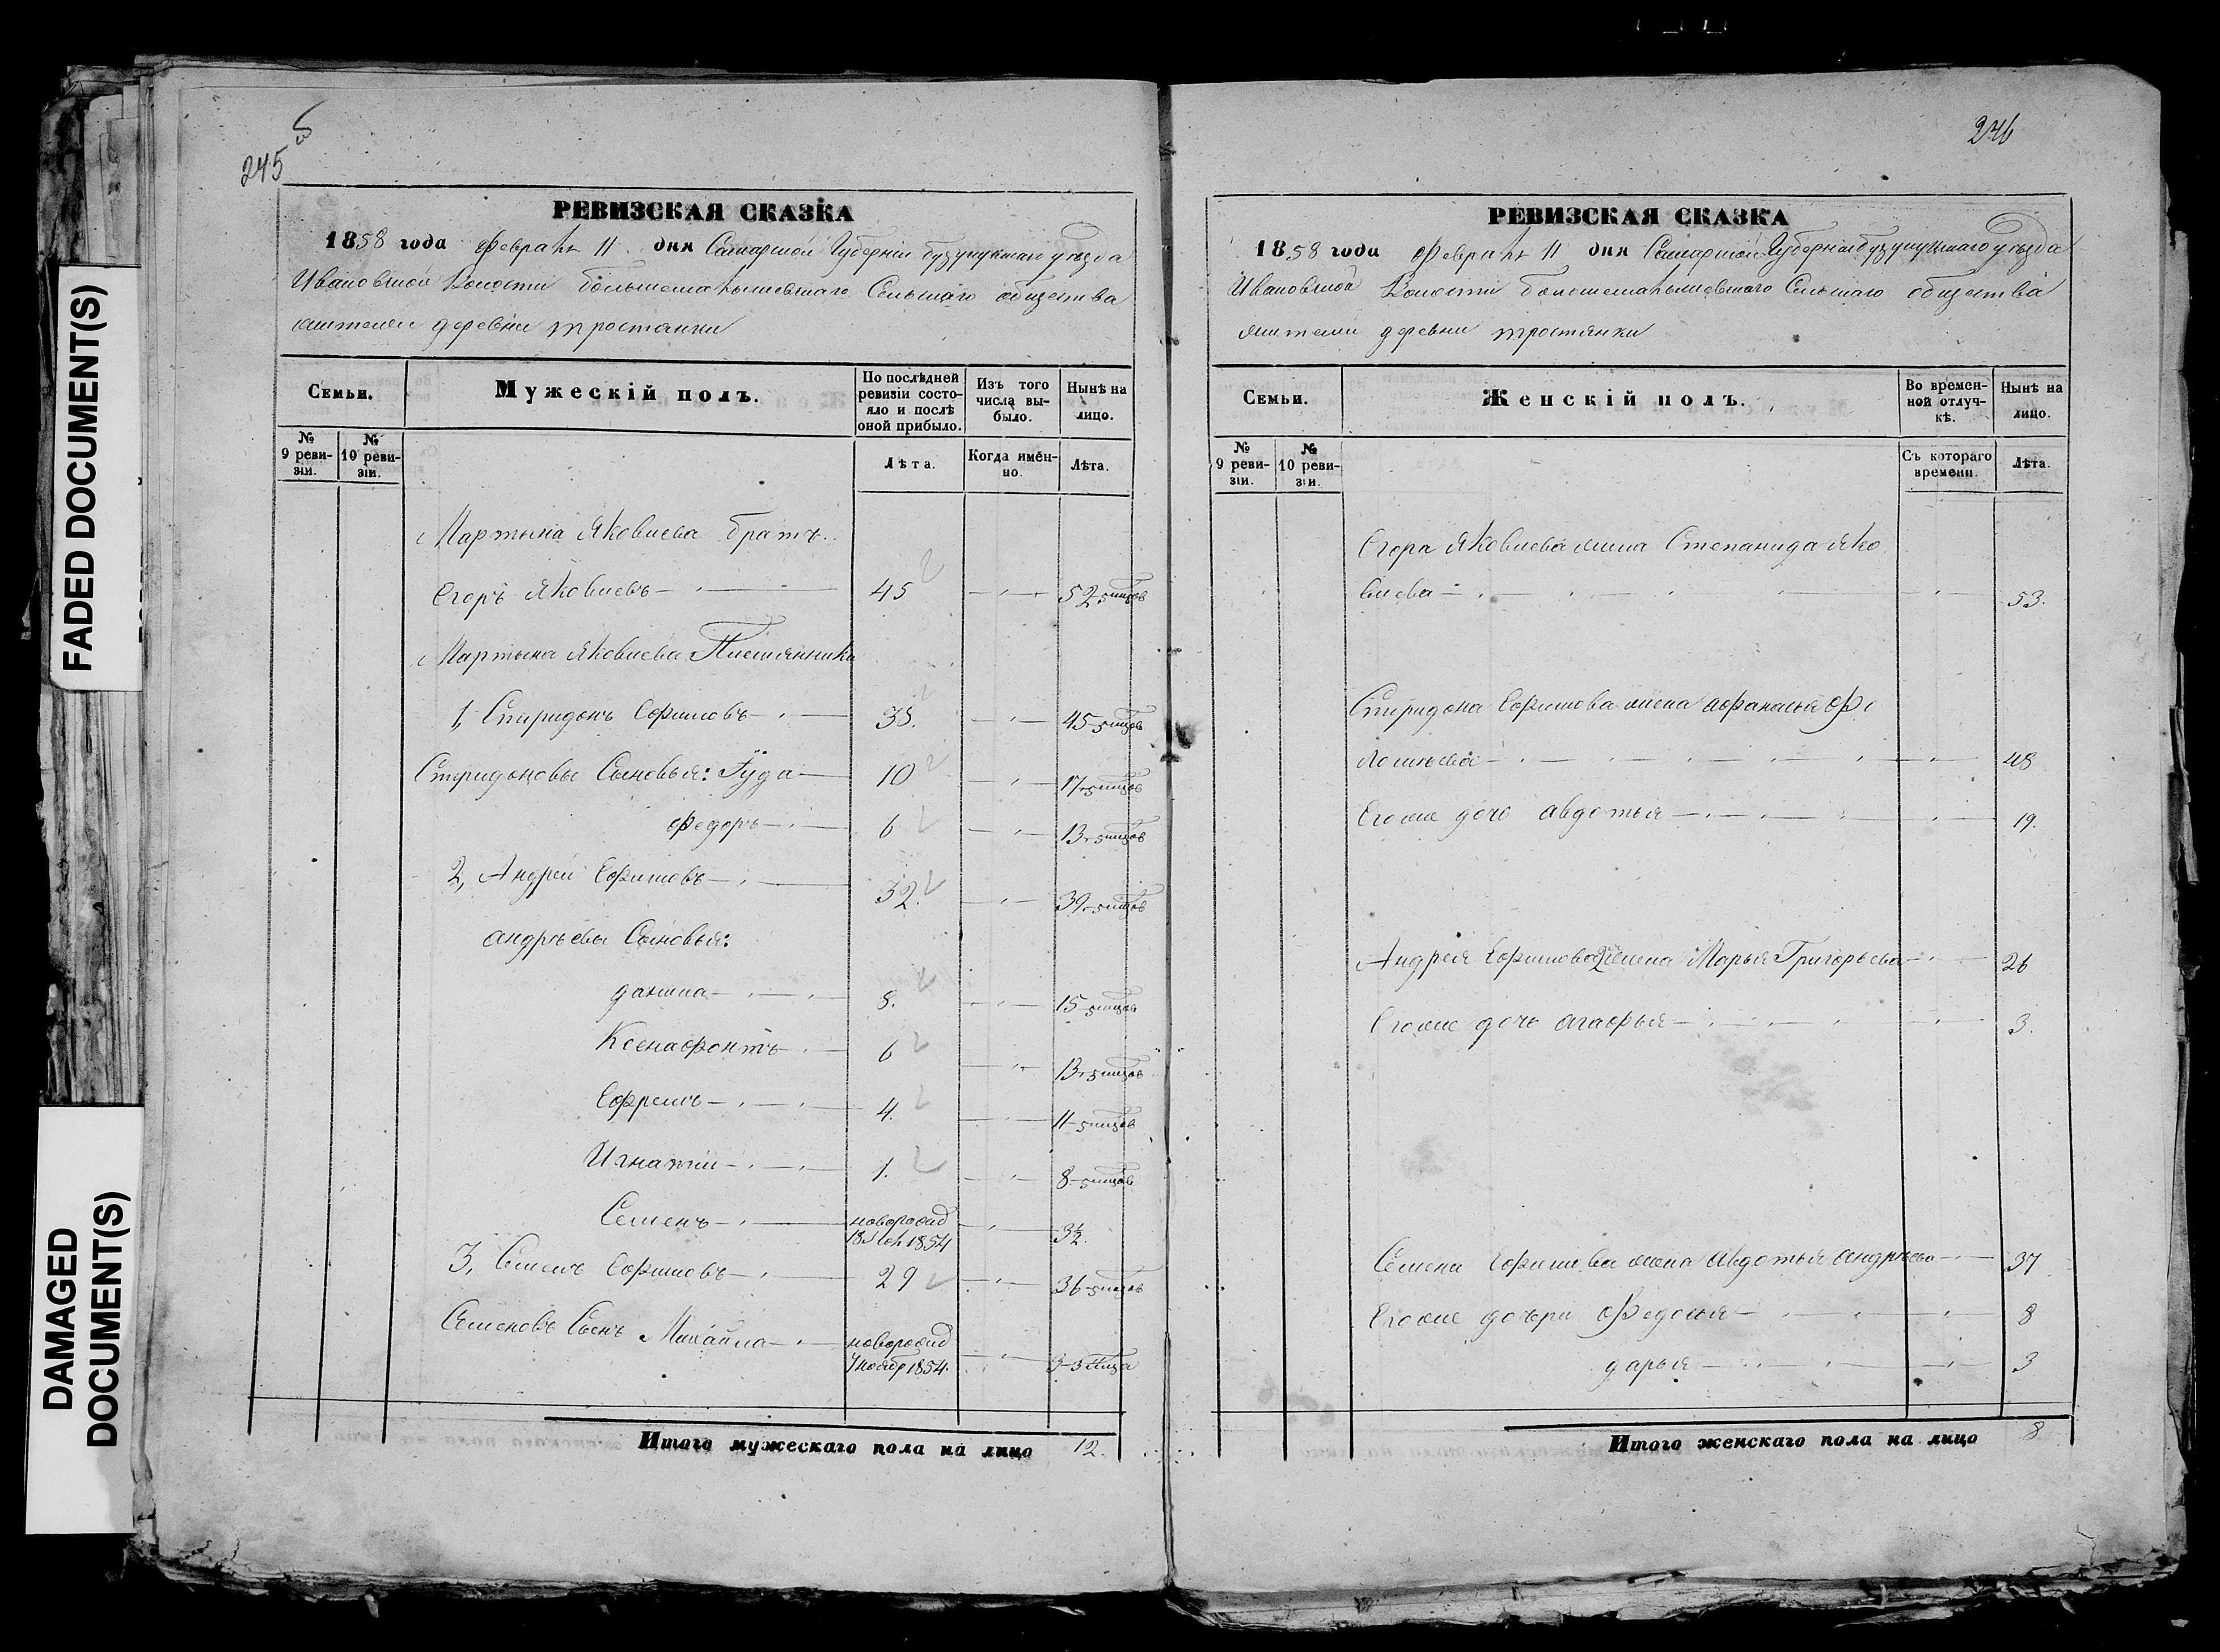 FADED DOCUMENT(S)
DAMAGED
DOCUMENT(S)
245
РЕВИЗСКАЯ СКАЗКА
1858 года Февраля 11 дня Самарской Губерніи бузулукскаго уѣзда
Ивановской Волости Сельскаго общества
жителей деревни тростянки
Семьи.
Мужескій полъ.
По послѣдней
ревизіи состо-
яло и послѣ
оной прибыло.
Изъ того
числа вы-
было.
Нынѣ на
лицо.
№
9 реви-
зіи.
№
10 реви-
зіи.
Лѣта.
Когда имен-
но.
Лѣта.
Мартына Яковлева братъ
Егоръ Яковлевъ 45 52
Мартына Яковлева Племянники
1, Спиридонъ Ефимовъ 45
Спиридоновы Сыновья: Іуда 10 17
Федоръ 6 13
2, Андрей Ефимовъ 32. 39
андрѣевы Сыновья:
данила 8. 15
Ксенофонтъ 6 13
Ефремъ 4. 11
Игнатій 1. 8
Семенъ новорожд 3½.
1854
3, Семенъ Ефимовъ 29 36
Семеновъ Сынъ Михайла новорожд
7 ноябр 1854. 3
Итого мужескаго пола на лицо 12.
246
РЕВИЗСКАЯ СКАЗКА
1858 года Февраля 11 дня Самарской Губерніи бузулукскаго уѣзда
Ивановской Волости Сельскаго общества
жителей деревни тростянки
Семьи.
Женскій полъ.
Во времен-
ной отлуч-
кѣ.
Нынѣ на
лицо.
№
9 реви-
зіи.
№
10 реви-
зіи.
Съ котораго
времени.
Лѣта.
Егора Яковлева жена Степанида Яко
влева 53.
Спиридона Ефимова жена афанасья
48
Его же дочь авдотья 19.
Андрея Ефимова 2 жена Марья Григорьева 26
Его же дочь агафья 3.
Семена Ефимова жена авдотья андрѣева 37
Его же дочери Федосья 8
дарья 3
Итого женскаго пола на лицо 8